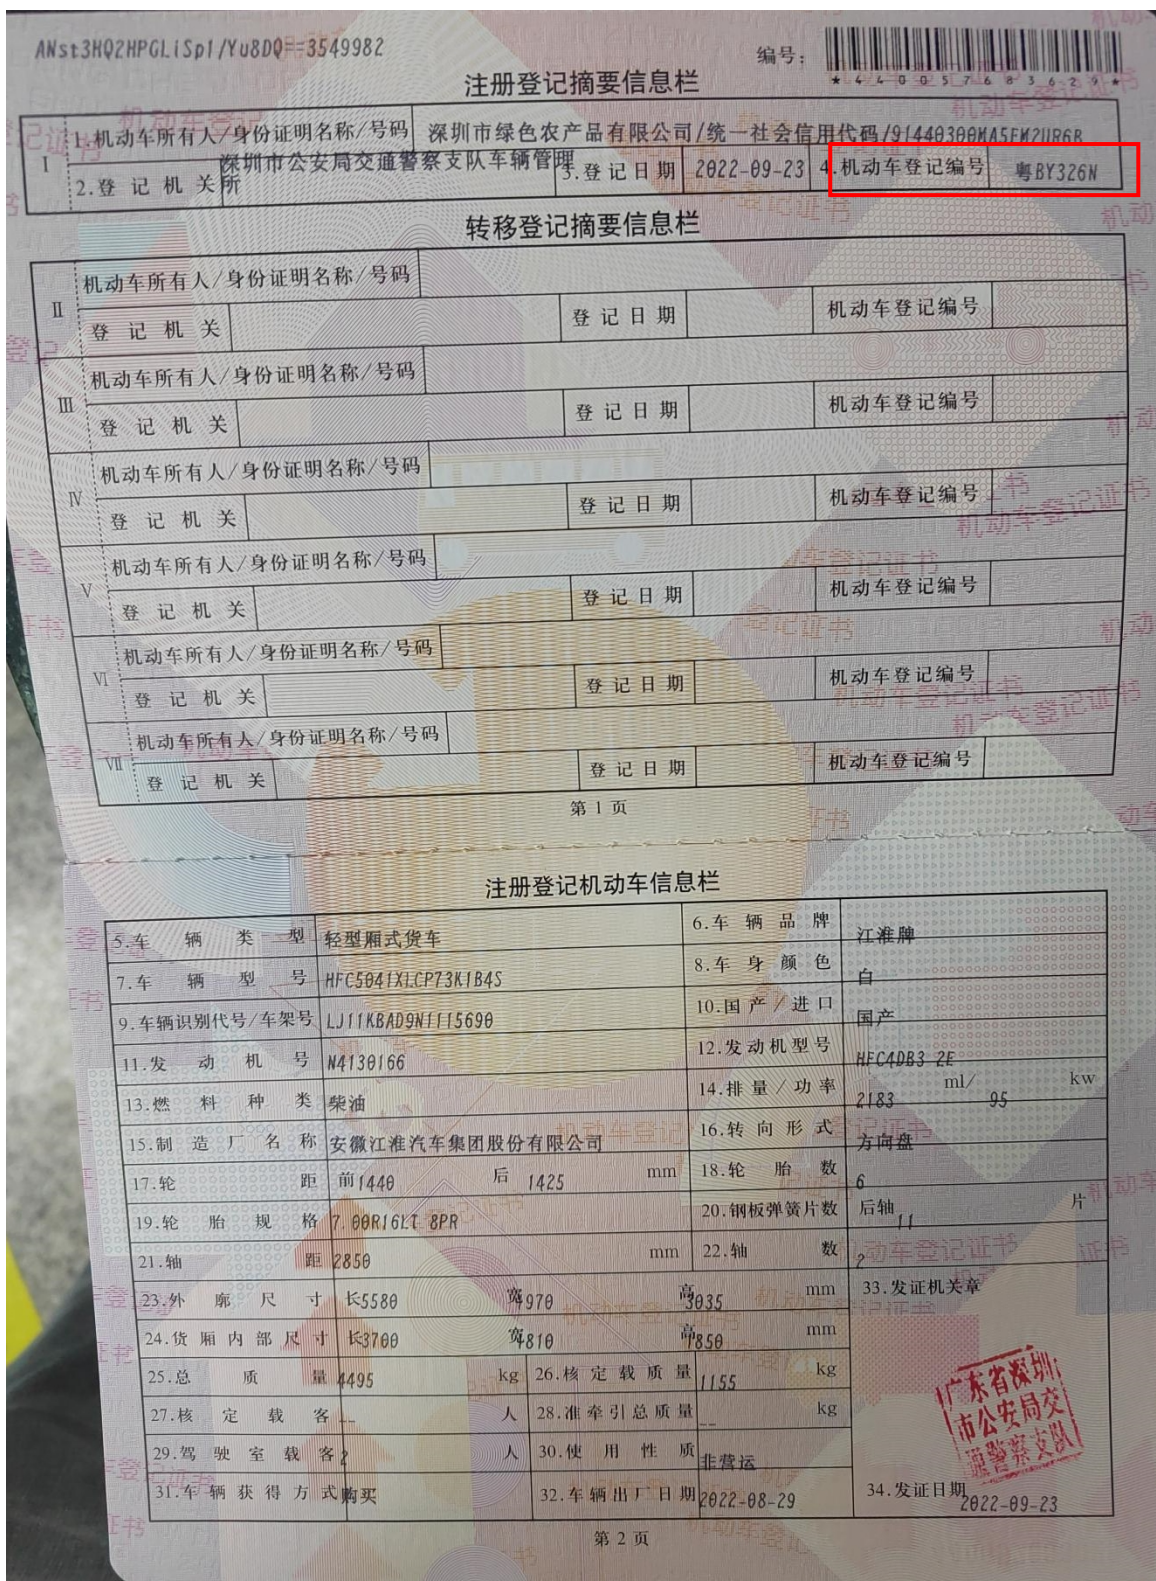 ANst3HQ2HPGLiSpl/Yu8DQ==3549982
编号:
*440057683629*
注册登记摘要信息栏
I
1.机动车所有人/身份证明名称/号码 深圳市绿色农产品有限公司/统一社会信用代码/91440300MA5EM2UR6B
2.登记机关 深圳市公安局交通警察支队车辆管理所 3.登记日期 2022-09-23 4.机动车登记编号 粤BY326N
转移登记摘要信息栏
II
机动车所有人/身份证明名称/号码
登记机关 登记日期 机动车登记编号
III
机动车所有人/身份证明名称/号码
登记机关 登记日期 机动车登记编号
IV
机动车所有人/身份证明名称/号码
登记机关 登记日期 机动车登记编号
V
机动车所有人/身份证明名称/号码
登记机关 登记日期 机动车登记编号
VI
机动车所有人/身份证明名称/号码
登记机关 登记日期 机动车登记编号
VII
机动车所有人/身份证明名称/号码
登记机关 登记日期 机动车登记编号
第1页
注册登记机动车信息栏
5.车辆类型 轻型厢式货车 6.车辆品牌 江淮牌
7.车辆型号 HFC5041XLCP73K1B4S 8.车身颜色 白
9.车辆识别代号/车架号 LJ11KBAD9N1115690 10.国产/进口 国产
11.发动机号 N4130166 12.发动机型号 HFC4DB3 2E
13.燃料种类 柴油 14.排量/功率 2183 ml/ 95 kw
15.制造厂名称 安徽江淮汽车集团股份有限公司 16.转向形式 方向盘
17.轮距 前1440 后 1425 mm 18.轮胎数 6
19.轮胎规格 7.00R16LT 8PR 20.钢板弹簧片数 后轴 11 片
21.轴距 2850 mm 22.轴数 2
23.外廓尺寸 长5580 宽1970 高3035 mm 33.发证机关章
24.货厢内部尺寸 长3700 宽1810 高1850 mm
25.总质量 4495 kg 26.核定载质量 1155 kg
27.核定载客 -- 人 28.准牵引总质量 -- kg
29.驾驶室载客 2 人 30.使用性质 非营运
31.车辆获得方式 购买 32.车辆出厂日期 2022-08-29 34.发证日期 2022-09-23
广东省深圳
市公安局交
通警察支队
第2页